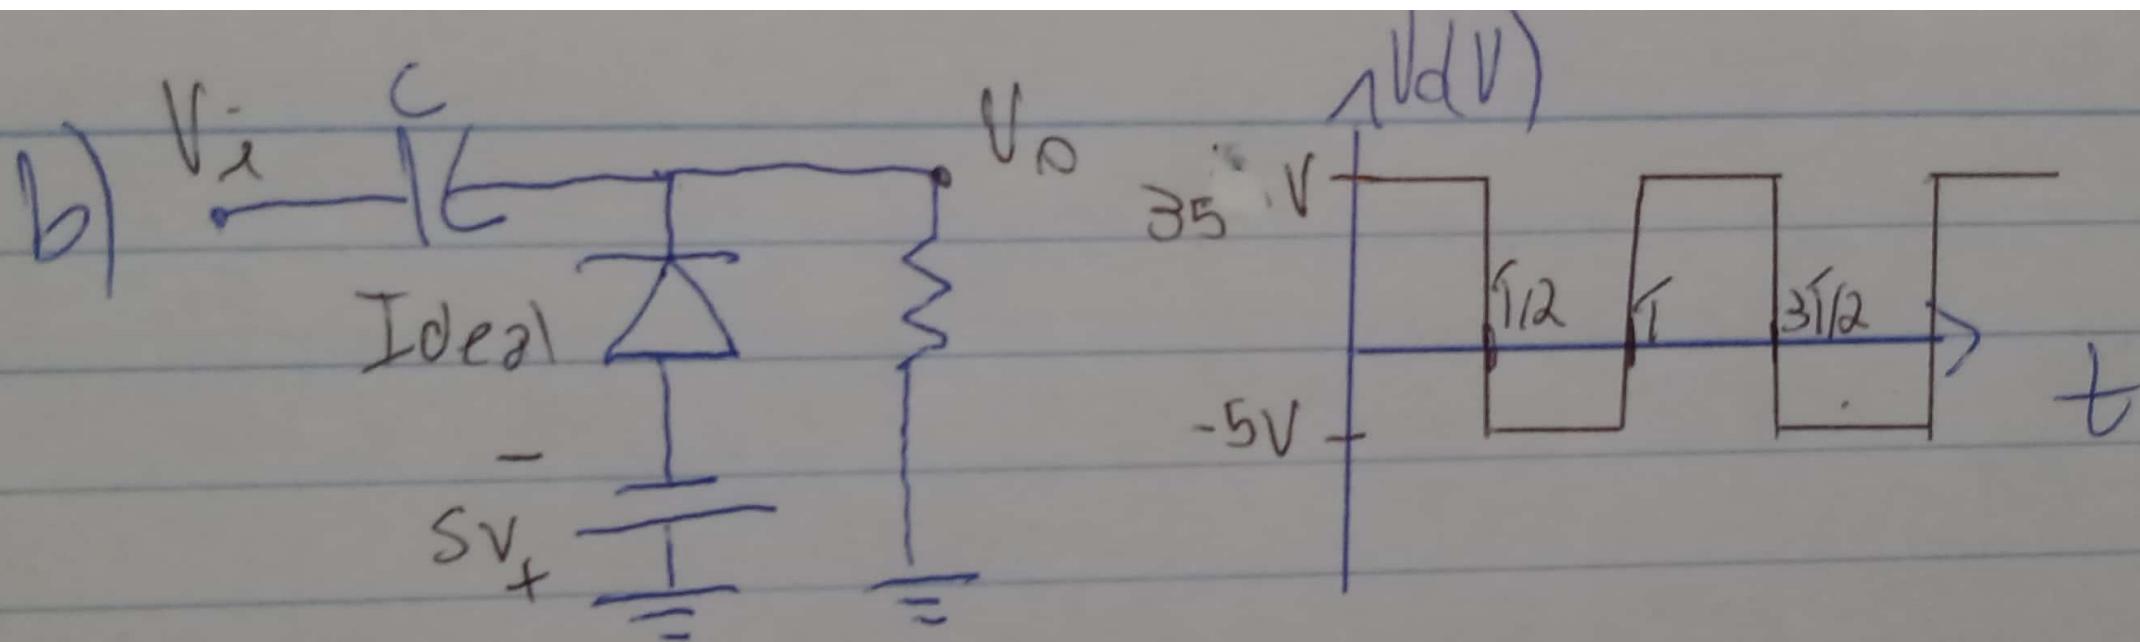 b)
Vi
C
Vo
Ideal
-
5V
+
Vd(V)
35 V
T/2
T
3T/2
-5V
t